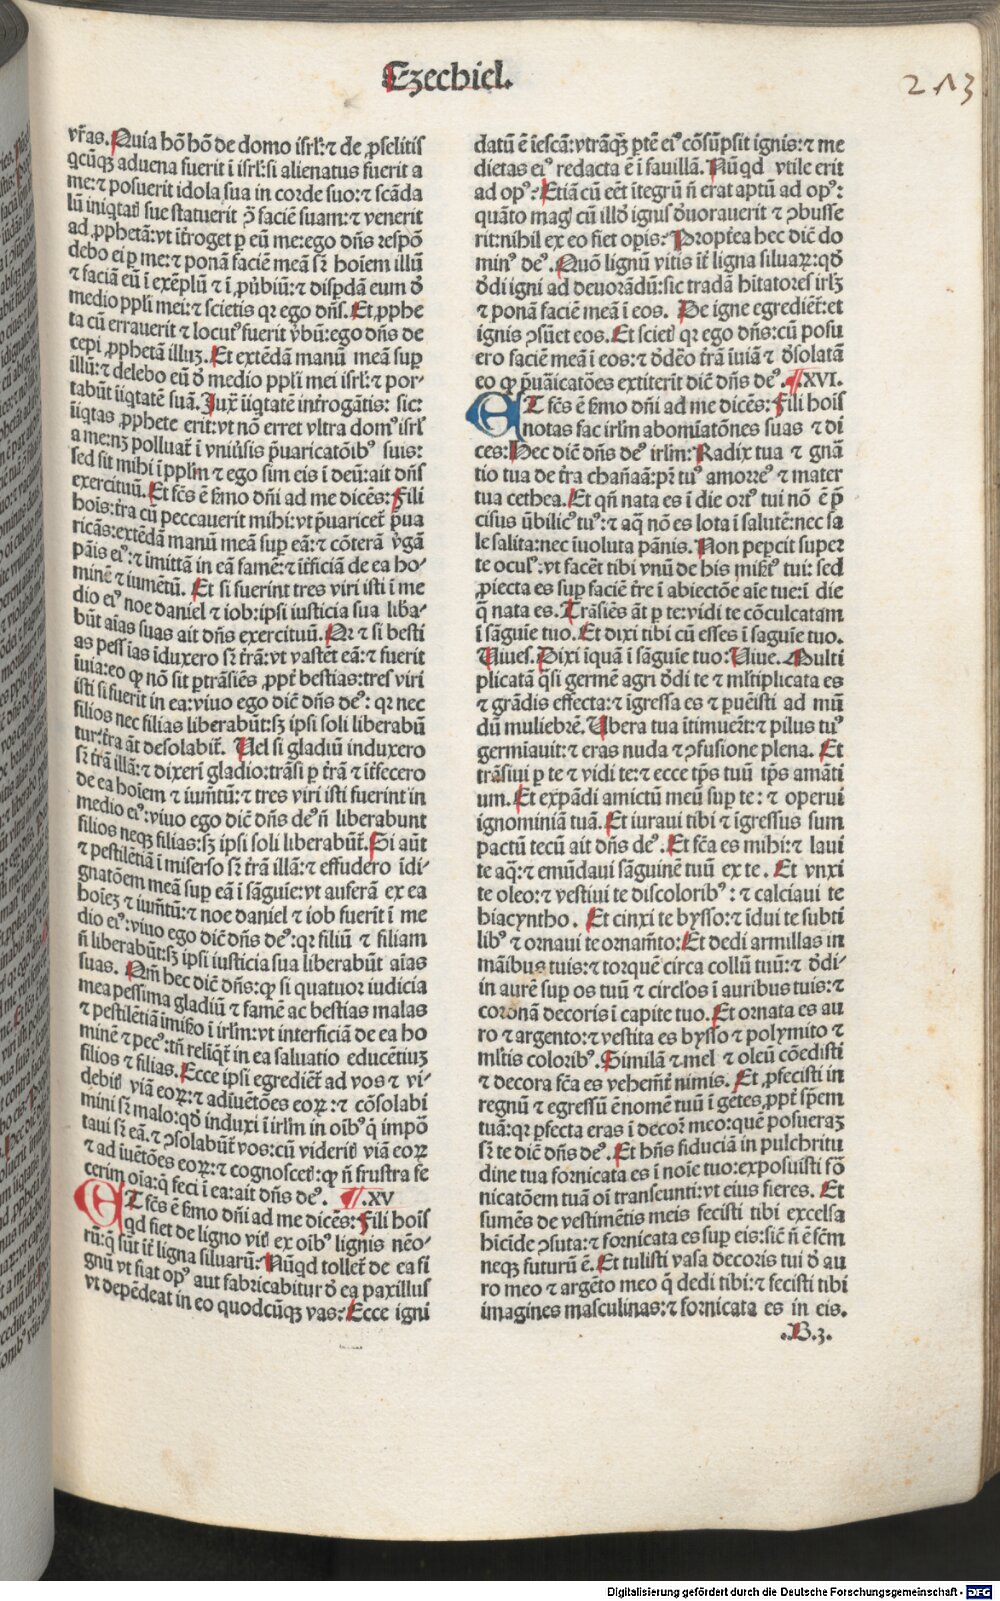 Ezechiel.
213
vr̄as. Quia hō hō de domo isrl̄: ⁊ de ꝓselitis
qcūqꝫ aduena fuerit ī isrl̄: si alienatus fuerit a
me: ⁊ posuerit idola sua in corde suo: ⁊ scāda
lū iniqtatꝭ sue statuerit ꝯ̄ faciē suam: ⁊ venerit
ad ꝓphetā: vt īt̄roget ꝑ eū me: ego dn̄s respō
debo ei ꝑ me: ⁊ ponā faciē meā sr̄ hoīem illū
⁊ faciā eū ī exēplū ⁊ ī ꝓūbiū: ⁊ disꝑdā eum ð
medio ppl̄i mei: ⁊ scietis qꝛ ego dn̄s. Et ꝓphe
ta cū errauerit ⁊ locutꝰ fuerit v̄bū: ego dn̄s de
cepi ꝓphetā illuꝫ. Et extēdā manū meā suꝑ
illū: ⁊ delebo eū ð medio ppl̄i mei isrl̄: ⁊ por-
tabūt īiqtatē suā. Juxͣ īiqtatē int̄rogātis: sic:
īiqtas ꝓphete erit: vt nō erret vltra domꝰ isrl̄
a me: nꝫ polluat̄ ī vniūsis p̄uaricatōibꝰ suis:
sed sit mihi ī ppl̄m ⁊ ego sim eis ī deū: ait dn̄s
exercituū. Et fc̄s ē s̄mo dn̄i ad me dicēs: Fili
hoīs: t̄ra cū peccauerit mihi: vt p̄uaricet̄ p̄ua
ricās: extēdā manū meā suꝑ eā: ⁊ cōterā v̄gā
pāis eiꝰ: ⁊ imittā in eā famē: ⁊ īt̄ficiā de ea ho-
minē ⁊ iumētū. Et si fuerint tres viri isti ī me
dio eiꝰ noe daniel ⁊ iob: ipsi iusticia sua lib̄a-
būt aīas suas ait dn̄s exercituū. Qꝛ ⁊ si besti
as pessīas īduxero sr̄ t̄rā: vt vastet̄ eā: ⁊ fuerit
īuia: eo ꝙ nō sit ꝑtrāsiēs ꝓpt̄ bestias: tres viri
isti si fuerit in ea: viuo ego dic̄ dn̄s deꝰ: qꝛ nec
filios nec filias liberabūt: sꝫ ipsi soli liberabū
tur: t̄ra āt desolabit̄. Uel si gladiū induxero
sr̄ t̄rā illā: ⁊ dixeri gladio: trāsi ꝑ t̄rā ⁊ īt̄fecero
de ea hoīem ⁊ ium̄tū: ⁊ tres viri isti fuerint in
medio eiꝰ: viuo ego dic̄ dn̄s de n̄ liberabunt
filios neqꝫ filias: sꝫ ipsi soli liberabūt̄. Si aūt
⁊ pestilētiā ī misero sr̄ t̄rā illā: ⁊ effudero īdi-
gnatōem meā suꝑ eā ī sāguie: vt auferā ex ea
hoīeꝫ ⁊ ium̄tū: ⁊ noe daniel ⁊ iob fuerit ī me
dio eiꝰ: viuo ego dic̄ dn̄s deꝰ: qꝛ filiū ⁊ filiam
n̄ liberabūt: sꝫ ipsi iusticia sua liberabūt aīas
suas. Qm̄ hec dic̄ dn̄s: ꝙ si quatuor iudicia
mea pessima gladiū ⁊ famē ac bestias malas
⁊ pestilētiā imis̄o ī irl̄m: vt interficiā de ea ho
minē ⁊ pecꝰ: tn̄ reliqt̄ in ea saluatio educētiuꝫ
filios ⁊ filias. Ecce ipsi egrediet̄ ad vos ⁊ vi-
debitꝭ viā eoꝝ: ⁊ adīuētōes eoꝝ: ⁊ cōsolabī
mini sr̄ malo: qð induxi ī irl̄m in oībꝰ q̄ impo
taui sr̄ eā. ⁊ ꝯsolabūt̄ vos: cū videritꝭ viā eoꝝ
⁊ ad īuētōes eoꝝ: ⁊ cognoscetꝭ: ꝙ n̄ frustra fe
cerim oīa: q̄ feci ī ea: ait dn̄s deꝰ. ¶ .XV
ET fc̄s ē s̄mo dn̄i ad me dicēs: Fili hoīs
qd fiet de ligno vitꝭ ex oībꝰ lignis nēo-
rū: q̄ sūt īt̄ ligna siluarū: Nūqd tollet̄ de ea si
gnū vt fiat opꝰ aut fabricabitur ð ea paxillus
vt depēdeat in eo quodcūqꝫ vas: Ecce igni
datū ē ī escā: vtrāqꝫ ꝑtē eiꝰ cōsūpsit ignis: ⁊ me
dietas eiꝰ redacta ē ī fauillā. Nūqd vtile erit
ad opꝰ: Etiā cū eēt itegrū n̄ erat aptū ad opꝰ:
quāto magꝭ cū illd̄ ignis ðuorauerit ⁊ ꝯbusse
rit: nihil ex eo fiet oꝑis: Propt̄ea hec dic̄ do
minꝰ deꝰ. Quō lignū vitis īt̄ ligna siluaꝝ: qð
ðdi igni ad deuorādū: sic tradā hītatores irl̄ꝫ
⁊ ponā faciē meā ī eos. De igne egrediet̄: et
ignis ꝯsūet eos. Et scietꝭ qꝛ ego dn̄s: cū posu
ero faciē meā ī eos: ⁊ ðdēo t̄rā īuiā ⁊ ðsolatā
eo ꝙ p̄uaicatōes extiterit dic̄ dn̄s deꝰ. ¶ XVI.
ET fc̄s ē s̄mo dn̄i ad me dicēs: Fili hoīs
notas fac irl̄m abomīatōnes suas ⁊ di
ces: Hec dic̄ dn̄s deꝰ irl̄m: Radix tua ⁊ gnā
tio tua de t̄ra chanaā: pr̄ tuꝰ amorreꝰ ⁊ mater
tua cethea. Et qn̄ nata es ī die ortꝰ tui nō ē p̄
cisus v̄bilicꝰ tuꝰ: ⁊ aq̄ nō es lota ī salutē: nec sa
le salita: nec īuoluta pānis. Non peꝑcit super
te oculꝰ: vt facēt tibi vnū de his mis̄tꝰ tui: sed
ꝓiecta es suꝑ faciē t̄re ī abiectōe aīe tue: ī die
q̄ nata es. Trāsiēs āt ꝑ te: vidi te cōculcatam
ī sāguie tuo. Et dixi tibi cū esses ī saguie tuo.
Uiues. Dixi īquā ī sāguie tuo: Uiue. Multi
plicatā q̄si germē agri ðdi te ⁊ ml̄tiplicata es
⁊ grādis effecta: ⁊ īgressa es ⁊ ꝑuēisti ad mū
dū muliebrē. Ubera tua ītimuert̄: ⁊ pilus tuꝰ
germiauit: ⁊ eras nuda ⁊ ꝯfusione plena. Et
trāsiui ꝑ te ⁊ vidi te: ⁊ ecce tp̄s tuū tp̄s amāti
um. Et expādi amictū meū suꝑ te: ⁊ operui
ignominiā tuā. Et iuraui tibi ⁊ īgressus sum
pactū tecū ait dn̄s deꝰ. Et fc̄a es mihi: ⁊ laui
te aq̄: ⁊ emūdaui sāguinē tuū ex te. Et vnxi
te oleo: ⁊ vestiui te discoloribꝰ: ⁊ calciaui te
hiacyntho. Et cinxi te bysso: ⁊ īdui te subti
libꝰ ⁊ ornaui te ornam̄to: Et dedi armillas in
māibus tuis: ⁊ torquē circa collū tuū: ⁊ ðdi-
in aurē suꝑ os tuū ⁊ circl̄os ī auribus tuis: ⁊
coronā decoris ī capite tuo. Et ornata es au
ro ⁊ argento: ⁊ vestita es bysso ⁊ polymito ⁊
ml̄tis coloribꝰ. Similā ⁊ mel ⁊ oleū cōedisti
⁊ decora fc̄a es vehem̄t̄ nimis. Et ꝓfecisti in
regnū ⁊ egressū ē nomē tuū ī gētes ꝓpt̄ spēm
tuā: qꝛ ꝑfecta eras ī decorꝭ meo: quē posueraꝫ
sr̄ te dic̄ dn̄s deꝰ. Et hn̄s fiduciā in pulchritu
dine tua fornicata es ī noīe tuo: exposuisti fō
nicatōem tuā oī transeunti: vt eius fieres. Et
sumēs de vestimētis meis fecisti tibi excelsa
hīcīde ꝯsuta: ⁊ fornicata es suꝑ eis: siē n̄ ē fc̄m
neqꝫ futurū ē. Et tulisti vasa decoris tui ð au
ro meo ⁊ argēto meo q̄ dedi tibi: ⁊ fecisti tibi
imagines masculinas: ⁊ fornicata es in eis.
.B.3.
Digitalisierung gefördert durch die Deutsche Forschungsgemeinschaft - DFG